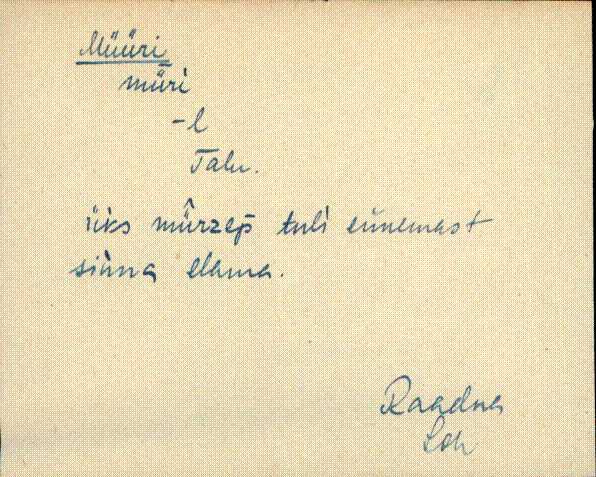 Müüri
mǖri
-l
Talu.
üks mǖrzep tuli ennemast
sinna elama.
Raadna